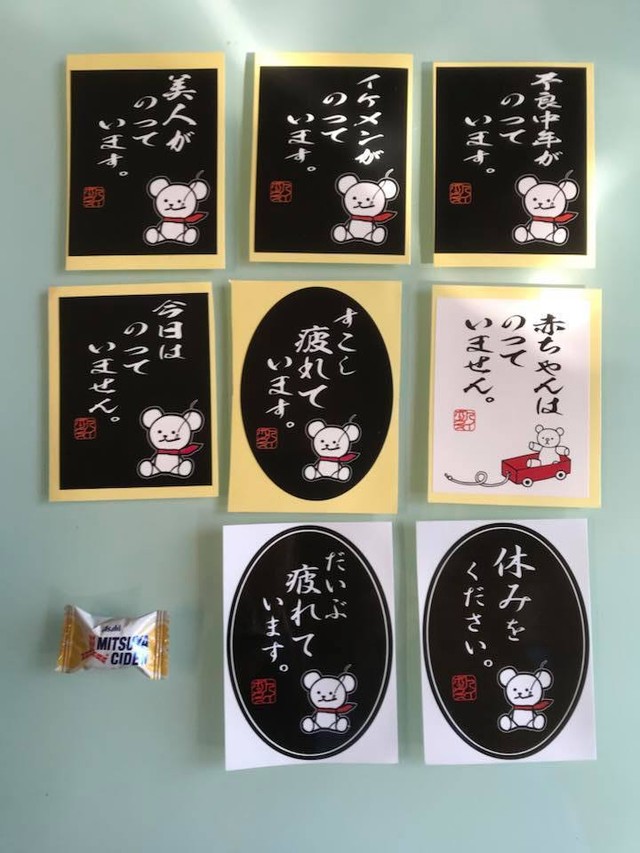 美人が
のって
います。
イケメンが
のって
います。
不良中年が
のって
います。
今日は
のって
いません。
すこし
疲れて
います。
赤ちゃんは
のって
いません。
だいぶ
疲れて
います。
休みを
ください。
Asahi
MITSUYA
CIDER